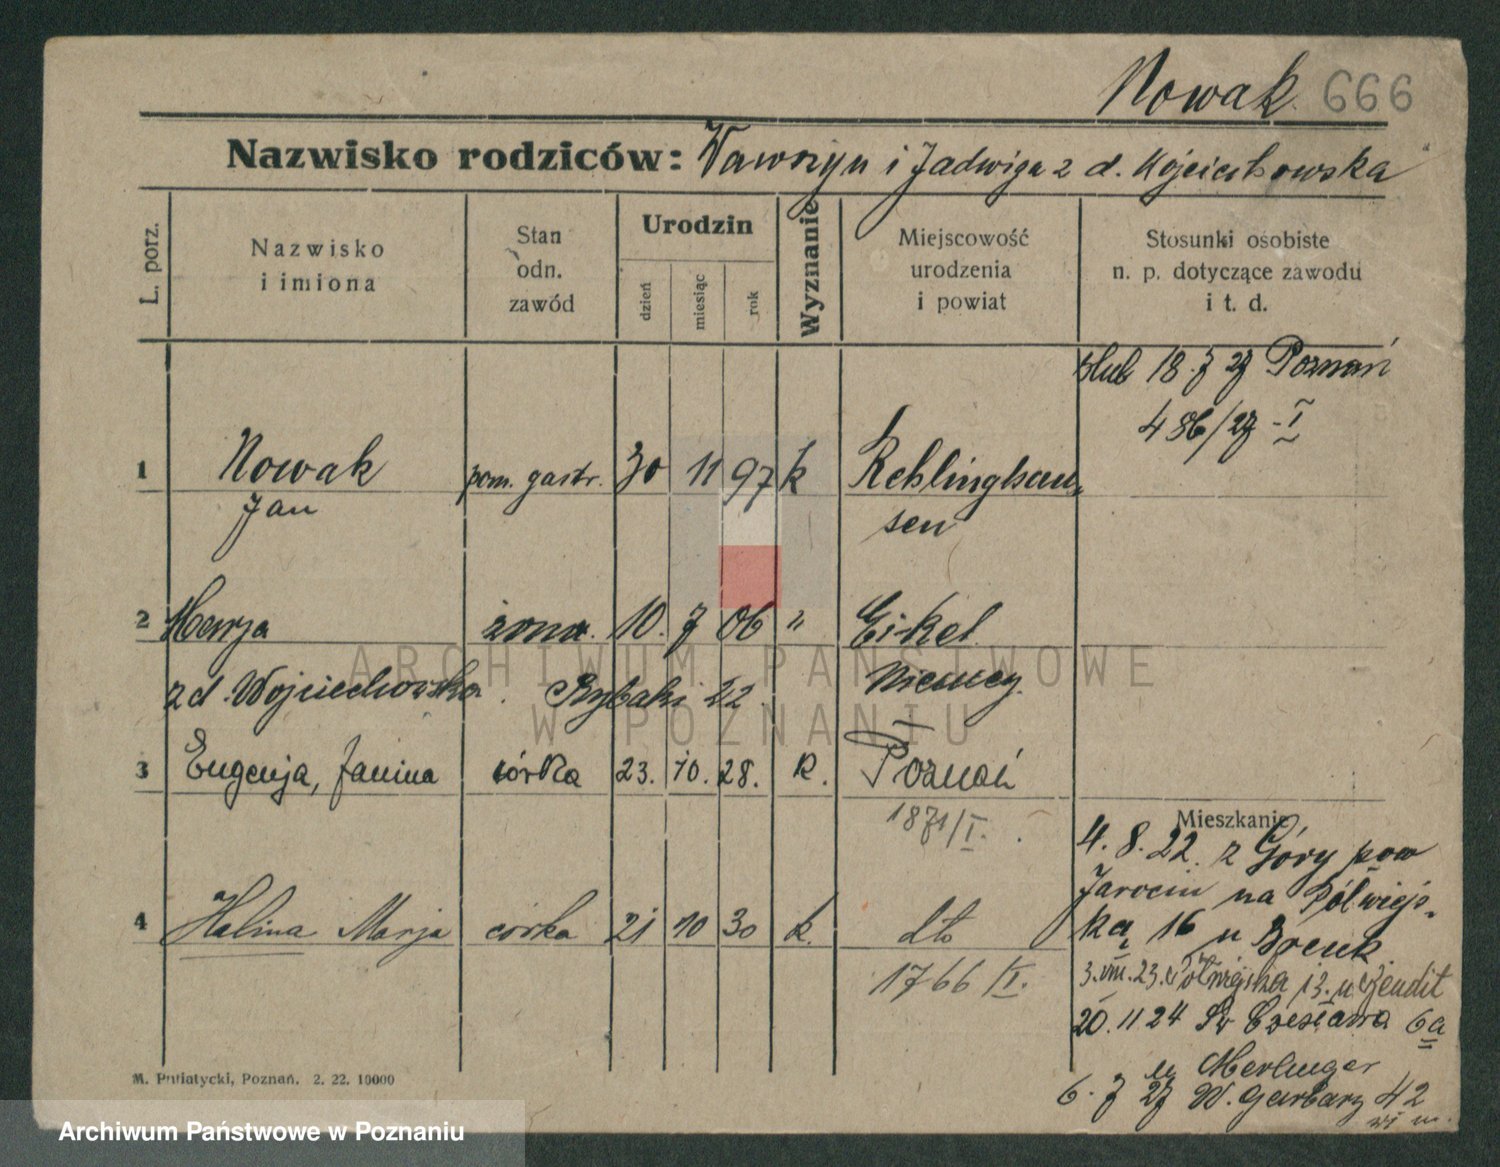 Nowak 666
Nazwisko rodziców: Wawrzyn i Jadwiga z d. Wojciechowska
L. porz.
Nazwisko
i imiona
Stan
odn.
zawód
Urodzin
dzień
miesiąc
rok
Wyznanie
Miejscowość
urodzenia
i powiat
Stosunki osobiste
n. p. dotyczące zawodu
i t. d.
ślub 18.7 27 Poznań
486/27 - I
1 Nowak pom. gastr. 30 11 97 k Rehlinghau-
Jan sen
2 Marja żona. 10. 7 06 " Eikel
z d. Wojciechowska. Rybaki 22 Niemcy
3 Eugenja, Janina córka 23. 10. 28. k. Poznań
1871/I.
Mieszkanie
4. 8. 22. z Góry pow
Jarocin na Półwiejs-
ka 16 u
4 Halina Marja córka 21 10 30 k. dto
1766/I.
3.VIII.23. Półwiejska 13. u
20. 11 24 Św Czesława 6a
u
6. 7 27 W. Garbary 42
M. Putiatycki, Poznań. 2. 22. 10000
ARCHIWUM PAŃSTWOWE
W POZNANIU
Archiwum Państwowe w Poznaniu